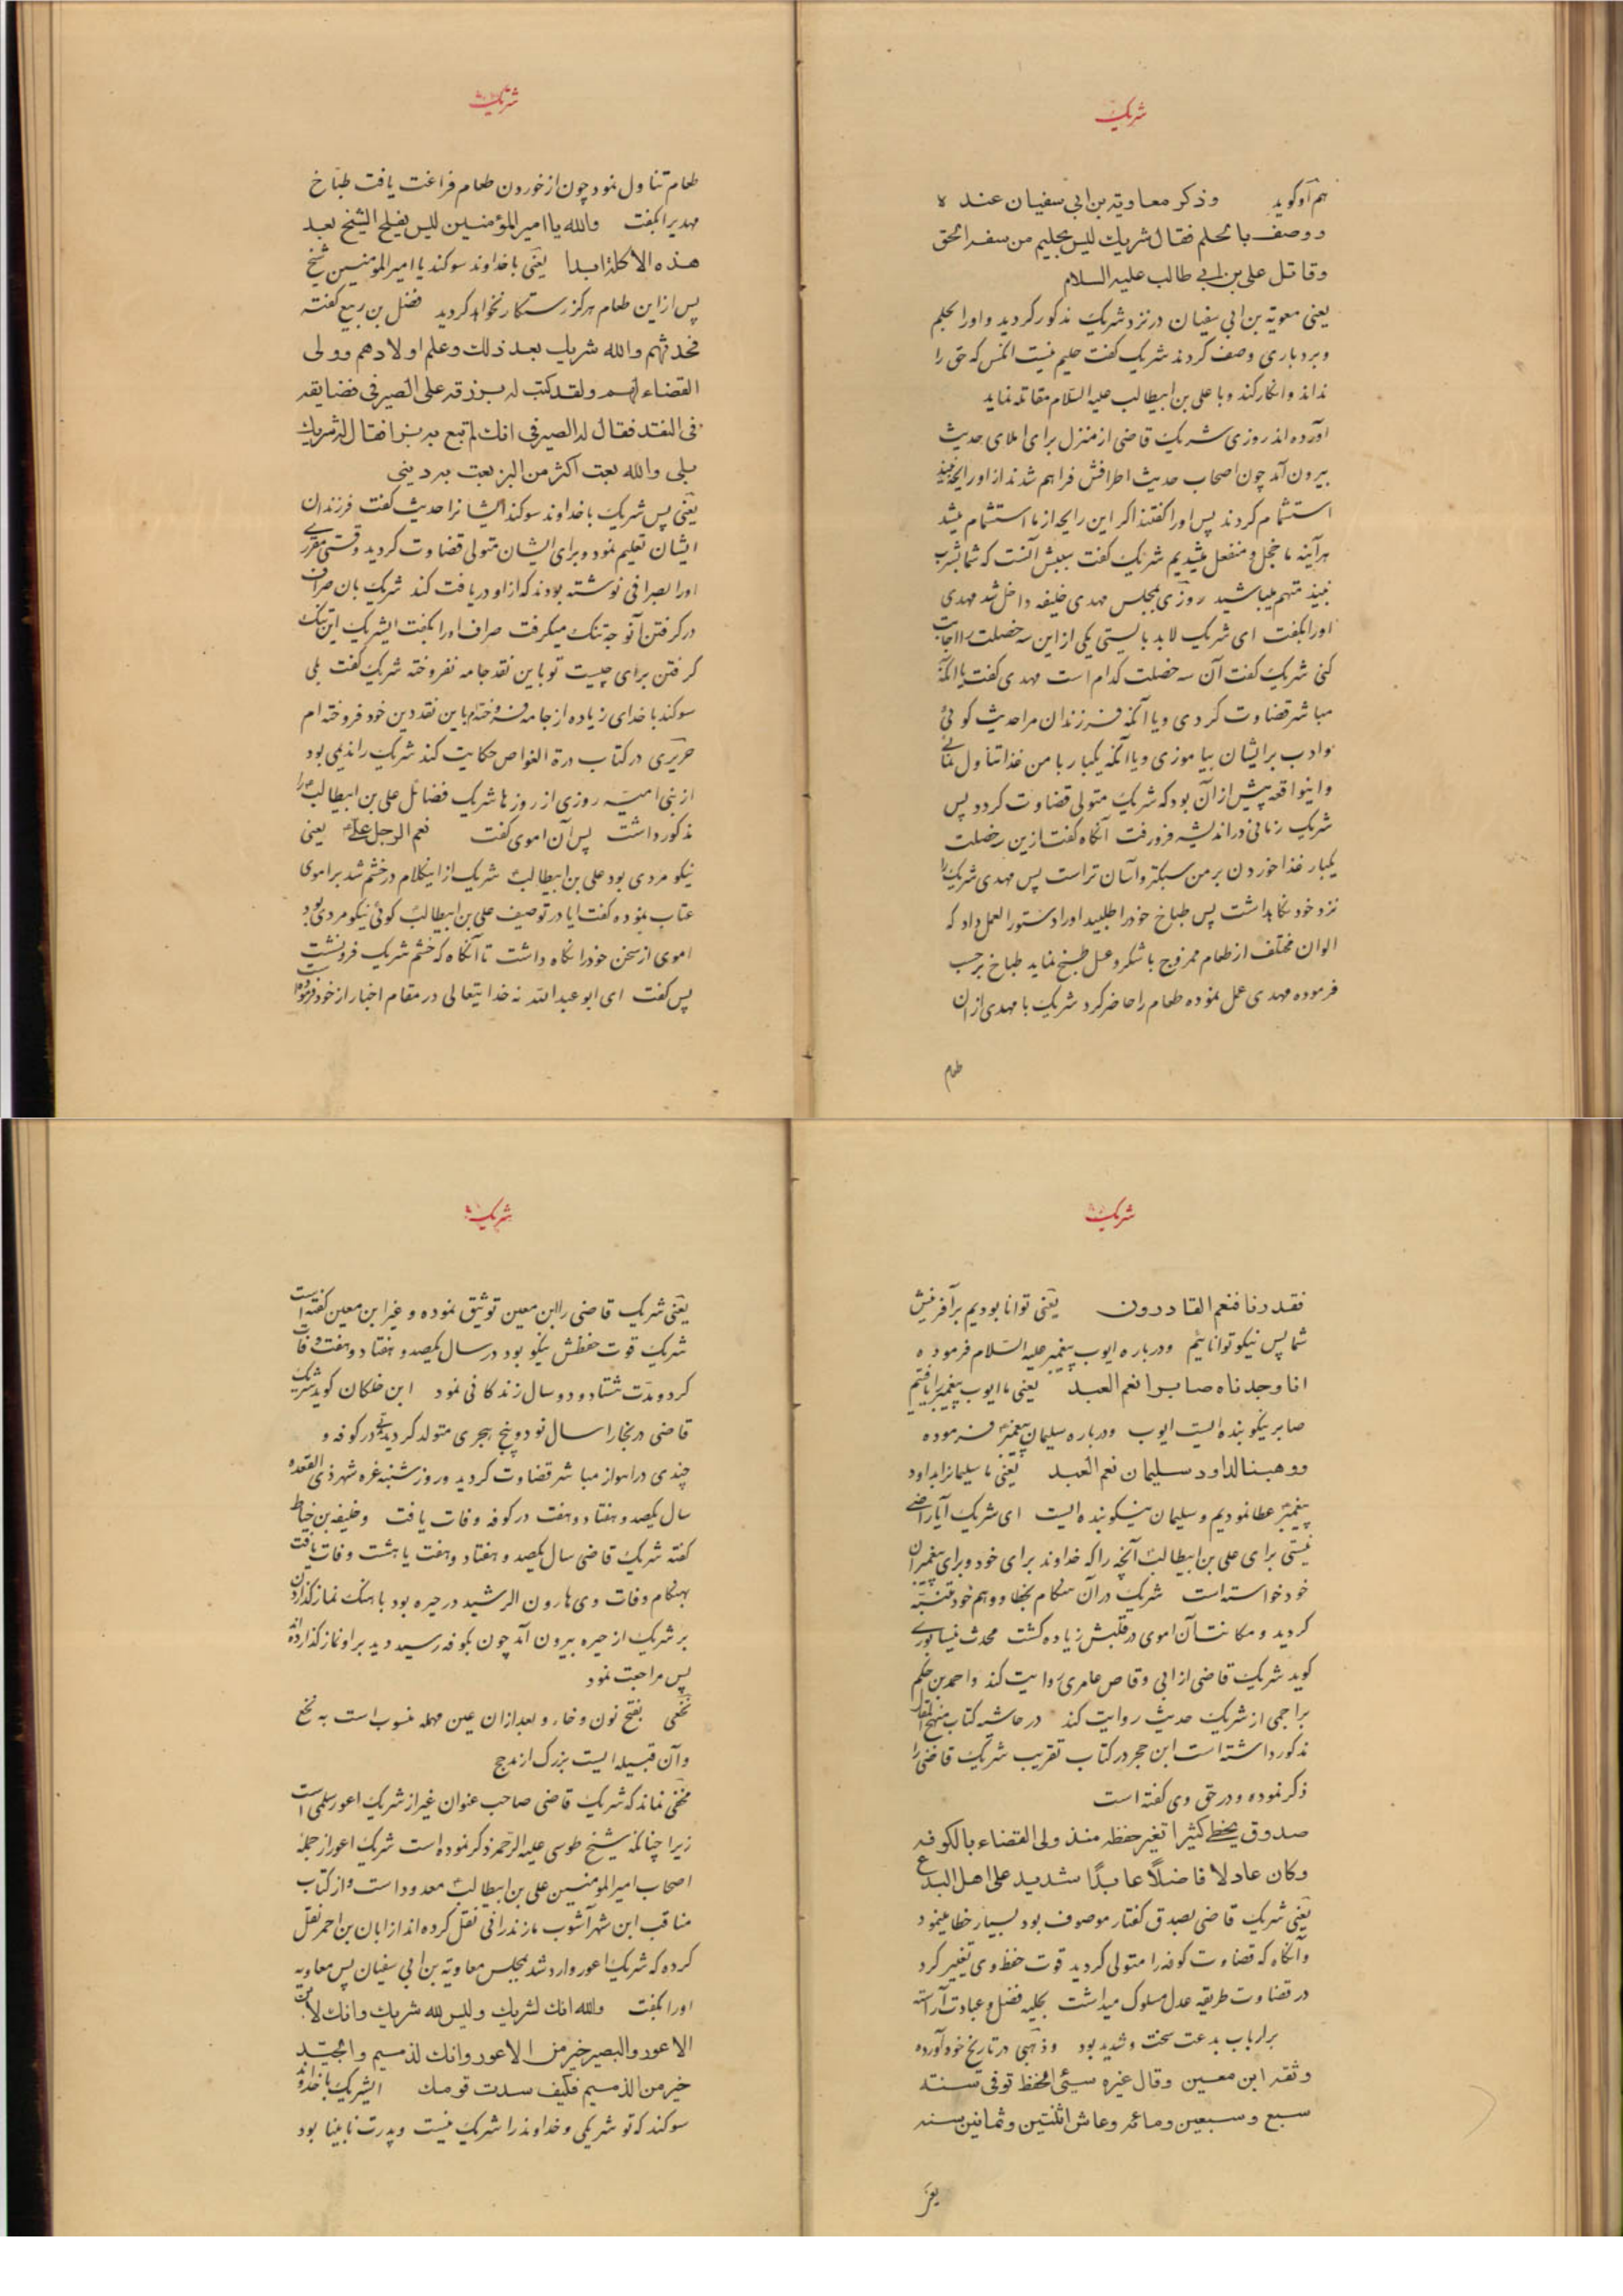 شریک
هم او کوید وذکر معاویة بن ابی سفیان عنده
ووصف بالحلم فقال شریک لیس بحلیم من سفه الحق
وقاتل علی بن ابی طالب علیه السلام
یعنی معویة بن ابی سفیان در نزد شریک مذکور کردید و او را بحلم
و بردباری وصف کردند شریک کفت حلیم نیست آنکس که حق را
نداند و انکار کند و با علی بن ابیطالب علیه السّلام مقاتله نماید
آورده اند روزی شریک قاضی از منزل برای املای حدیث
بیرون آمد چون اصحاب حدیث اطرافش فراهم شدند از او رایحه نبیذ
استشمام کردند پس او را کفتند اکر این رایحه از ما استشمام میشد
هرآینه ما خجل و منفعل میشدیم شریک کفت سببش آنست که شما بشرب
نبیذ متهم میباشید روزی بمجلس مهدی خلیفه داخل شد مهدی
او را بکفت ای شریک لابد بایستی یکی از این سه خصلت را اجابت
کنی شریک کفت آن سه خصلت کدام است مهدی کفت یا آنکه
مباشر قضاوت کردی و یا آنکه فرزندان مرا حدیث کوئی
و ادب بر ایشان بیاموزی و یا آنکه یکبار با من غذا تناول نمائی
و اینواقعه پیش از آن بود که شریک متولی قضاوت کردد پس
شریک زمانی در اندیشه فرو رفت آنکاه کفت از این سه خصلت
یکبار غذا خوردن بر من سبکتر و آسان تر است پس مهدی شریک را
نزد خود نکاهداشت پس طباخ خود را طلبید او را دستور العمل داد که
الوان مختلف از طعام ممزوج با شکر و عسل طبخ نماید طباخ برحسب
فرموده مهدی عمل نموده طعام را حاضر کرد شریک با مهدی از آن
طعام
شریک
طعام تناول نمود چون از خوردن طعام فراغت یافت طبّاخ
مهدیرا بکفت والله یا امیر المؤمنین لیس یفلح الشیخ بعد
هذه الاکلة ابدا یعنی با خداوند سوکند یا امیر المومنین شیخ
پس از این طعام هرکز رستکار نخواهد کردید فضل بن ربیع کفته
فحدثهم والله شریک بعد ذلک وعلم اولادهم وولی
القضاء لهم ولقد کتب له برزقه علی الصیرفی فضایقه
فی النقد فقال له الصیرفی انک لم تبع به بزا فقال له شریک
بلی والله بعت اکثر من البز بعت به دینی
یعنی پس شریک با خداوند سوکند ایشانرا حدیث کفت فرزندان
ایشان تعلیم نمود و برای ایشان متولی قضاوت کردید وقتی مقرری
او را بصرافی نوشته بودند که از او دریافت کند شریک بان صراف
در کرفتن آنوجه تنک میکرفت صراف او را بکفت ایشریک این تنک
کرفتن برای چیست تو باین نقد جامه نفروخته شریک کفت بلی
سوکند با خدای زیاده از جامه فروخته ام باین نقد دین خود فروخته ام
حریری در کتاب درة الغواص حکایت کند شریک را ندیمی بود
از بنی امیّه روزی از روزها شریک فضائل علی بن ابیطالب را
مذکور داشت پس آن اموی کفت نعم الرجل علی یعنی
نیکو مردی بود علی بن ابیطالب شریک از اینکلام در خشم شد بر اموی
عتاب نموده کفت ایا در توصیف علی بن ابیطالب کوئی نیکو مردی بود
اموی از سخن خود را نکاه داشت تا آنکاه که خشم شریک فرو نشست
پس کفت ای ابو عبدالله نه خدایتعالی در مقام اخبار از خود فرموده
شریک
فقدرنا فنعم القادرون یعنی توانا بودیم بر آفرینش
شما پس نیکو توانائیم و درباره ایوب پیغمبر علیه السّلام فرموده
انا وجدناه صابرا نعم العبد یعنی ما ایوب پیغمبر را یافتیم
صابر نیکو بنده ایست ایوب و درباره سلیمان پیغمبر فرموده
ووهبنا لداود سلیمان نعم العبد یعنی ما سلیمانرا بداود
پیغمبر عطا نمودیم و سلیمان نیکو بنده ایست ای شریک آیا راضی
نیستی برای علی بن ابیطالب آنچه را که خداوند برای خود و برای پیغمبران
خود خواسته است شریک در آن هنکام بخطا و وهم خود متنبّه
کردید و مکانت آن اموی در قلبش زیاده کشت محدث نیسابوری
کوید شریک قاضی از ابی وقاص عامری روایت کند و احمد بن حکم
براجمی از شریک حدیث روایت کند در حاشیه کتاب منهج المقال
مذکور داشته است ابن حجر در کتاب تقریب شریک قاضی را
ذکر نموده و در حق وی کفته است
صدوق یخطی کثیرا تغیر حفظه منذ ولی القضاء بالکوفه
وکان عادلا فاضلًا عابدًا شدید علی اهل البدع
یعنی شریک قاضی بصدق کفتار موصوف بود بسیار خطا مینمود
و آنکاه که قضاوت کوفه را متولی کردید قوت حفظ وی تغییر کرد
در قضاوت طریقه عدل مسلوک میداشت بحلیه فضل و عبادت آراسته
بر ارباب بدعت سخت و شدید بود و ذهبی در تاریخ خود آورده
وثقه ابن معین وقال غیره سیّئ الحفظ توفی سنته
سبع وسبعین ومائه وعاش اثنتین وثمانین سنه
یعنی
شریک
یعنی شریک قاضی را ابن معین توثیق نموده و غیر ابن معین کفته است
شریک قوت حفظش نیکو بود در سال یکصد و هفتاد و هفت وفات
کرد و مدّت هشتاد و دو سال زندکانی نمود ابن خلکان کوید شریک
قاضی در بخارا سال نود و پنج هجری متولد کردید در کوفه و
چندی در اهواز مباشر قضاوت کردید و روز شنبه غره شهر ذی القعده
سال یکصد و هفتاد و هفت در کوفه وفات یافت و خلیفه بن خیاط
کفته شریک قاضی سال یکصد و هفتاد و هفت یا هشت وفات یافت
بهنکام وفات وی هارون الرشید در حیره بود باهنک نماز کذاردن
بر شریک از حیره بیرون آمد چون بکوفه رسید دید بر او نماز کذارده اند
پس مراجعت نمود
نخعی بفتح نون و خاء و بعد از ان عین مهمله منسوب است به نخع
و آن قبیله ایست بزرک از مذحج
مخفی نماند که شریک قاضی صاحب عنوان غیر از شریک اعور سلمی است
زیرا چنانکه شیخ طوسی علیه الرّحمه ذکر نموده است شریک اعور از جمله
اصحاب امیر المومنین علی بن ابیطالب معدود است و از کتاب
مناقب ابن شهر آشوب مازندرانی نقل کرده اند از ابان بن احمر نقل
کرده که شریک اعور وارد شد بمجلس معاویة بن ابی سفیان پس معاویه
او را بکفت والله انک لشریک ولیس لله شریک وانک لابن
الاعور والبصیر خیر من الاعور وانک لذمیم والجیّد
خیر من الذمیم فکیف سدت قومک ایشریک با خداوند
سوکند که تو شریکی و خداوند را شریک نیست و پدرت نابینا بود